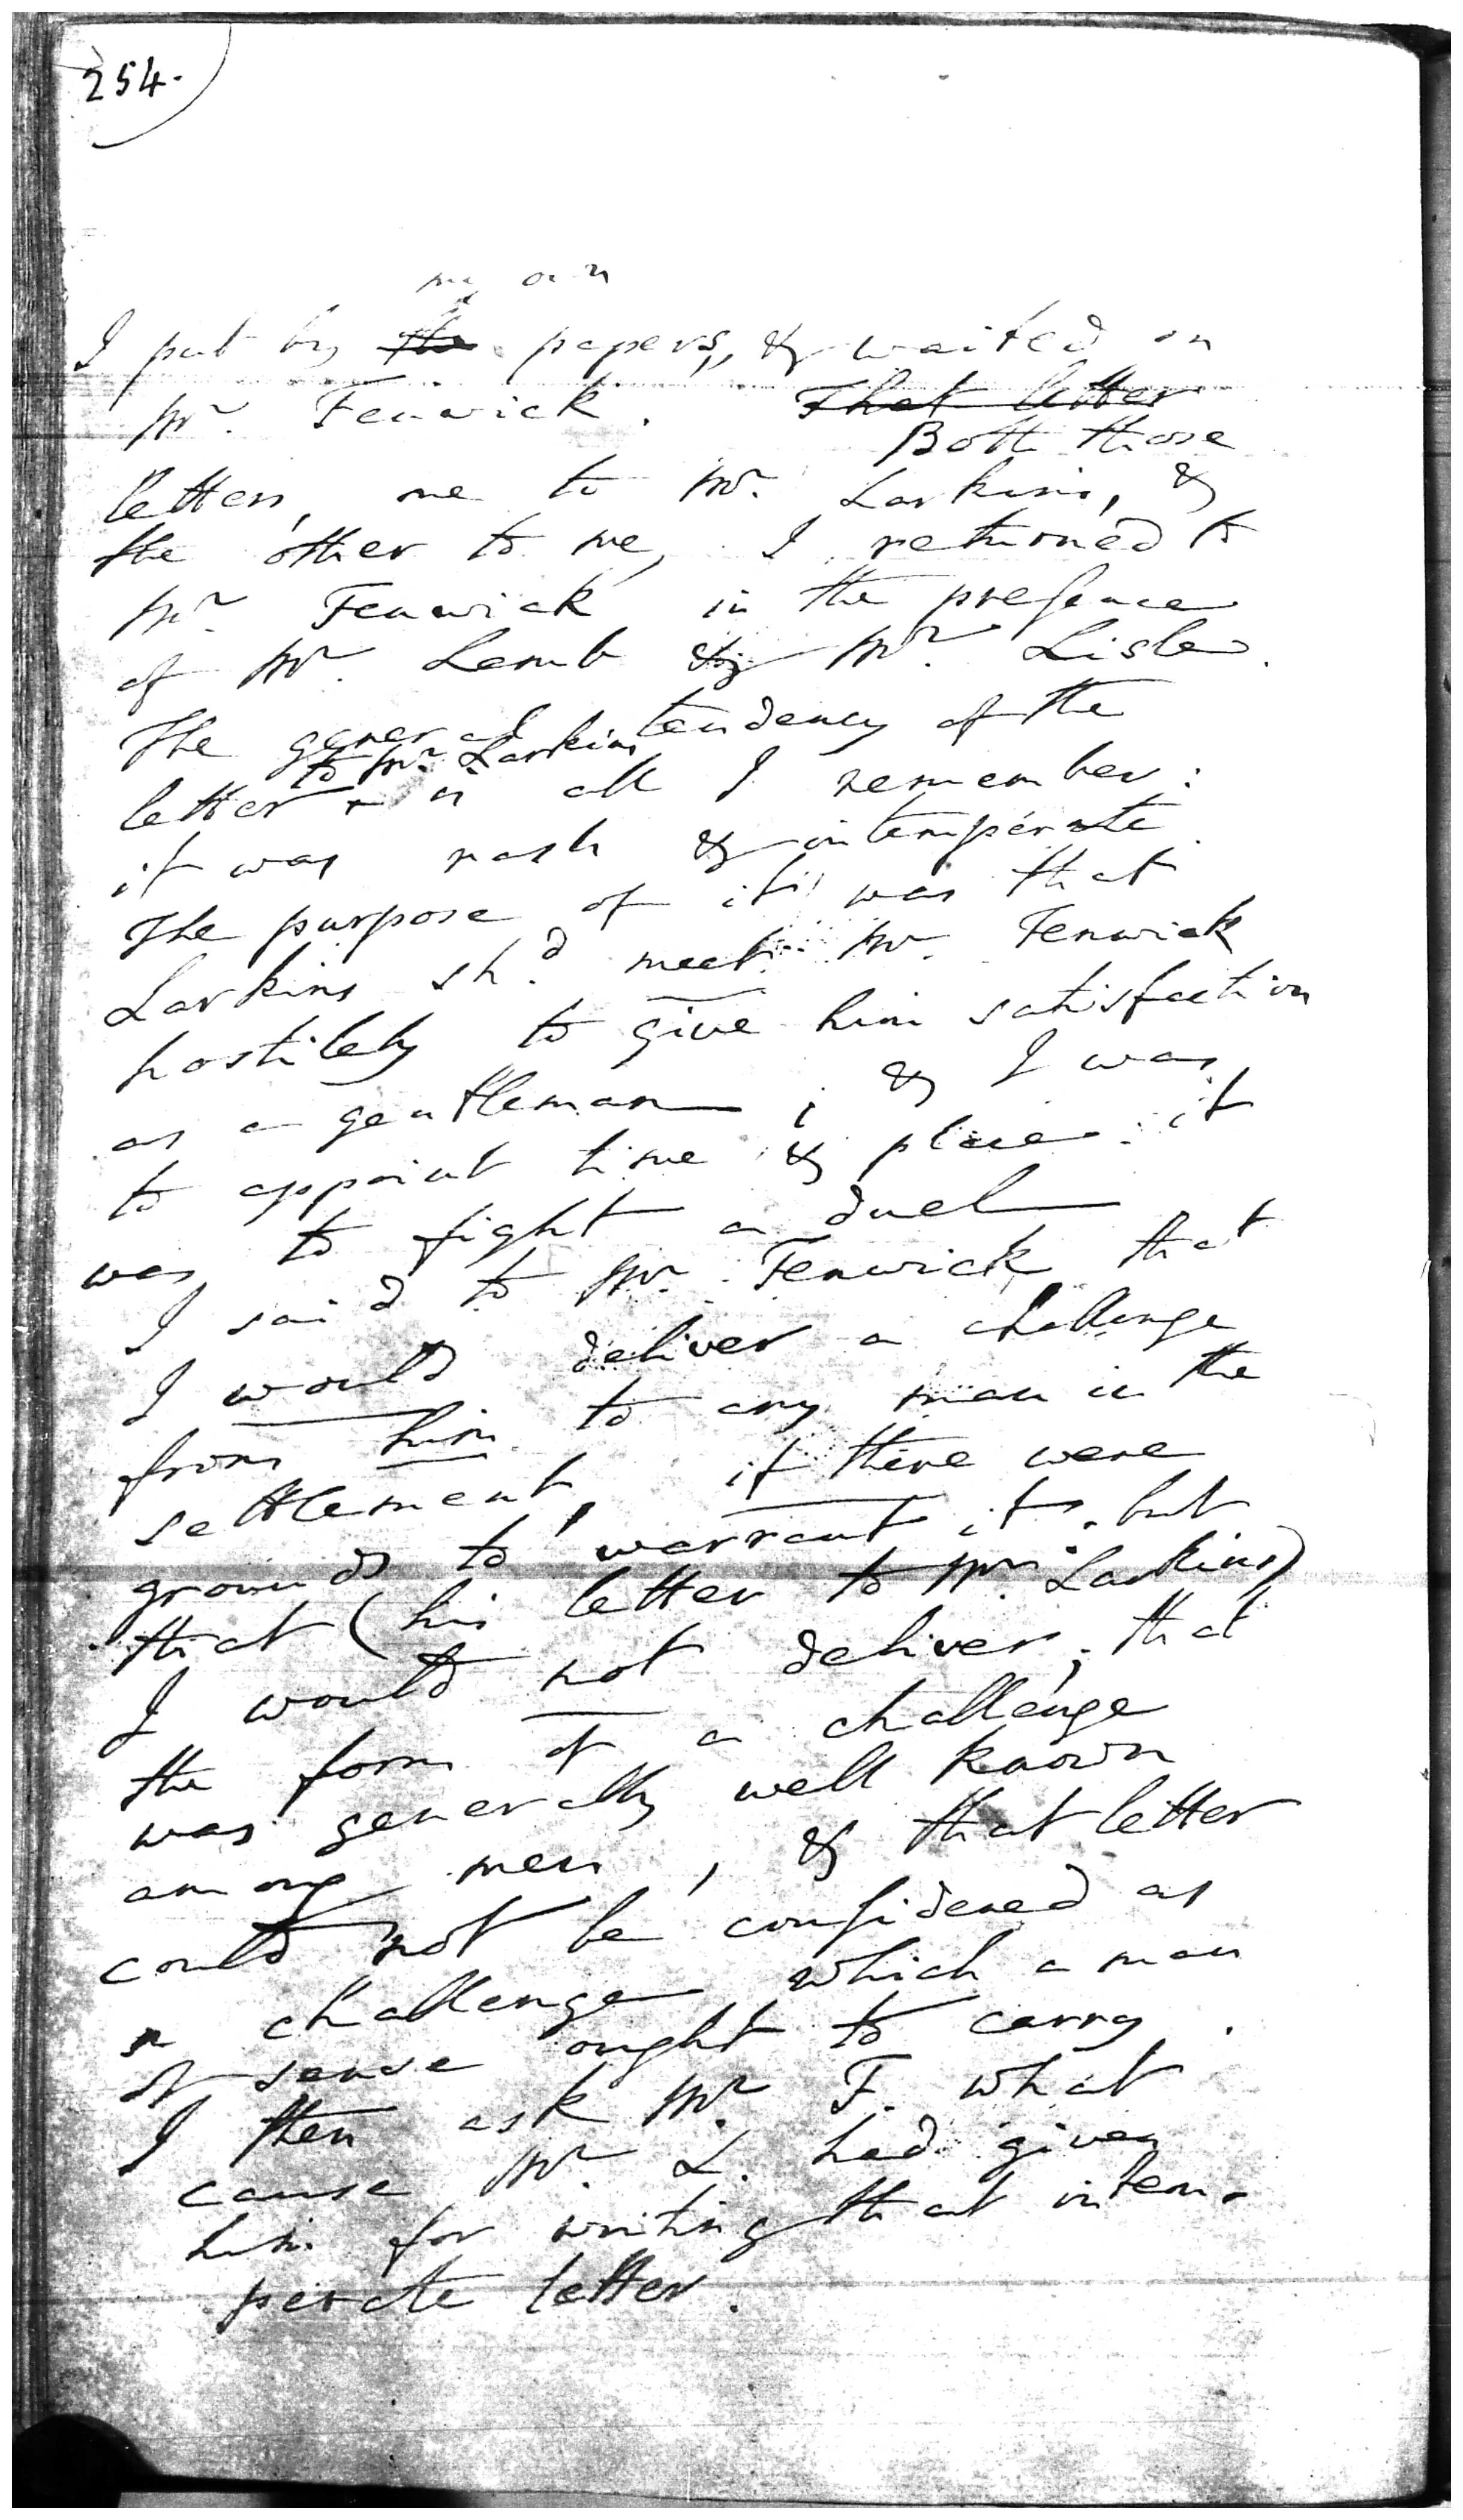 254.
my own
I put by the papers, & waited on
Mr. Fenwick. That letter
Both those
letters, one to Mr. Larkins, &
the other to me, I returned to
Mr. Fenwick in the presence
of Mr. Lamb & Mr. Lisle.
The general tendency of the
to Mr. Larkins
letter is all I remember:
it was rash & intemperate.
The purpose of it was that
Larkins shd. meet Mr. Fenwick
hostilely to give him satisfaction
as a gentleman; & I was
to appoint time & place: it
was to fight a duel
I said to Mr. Fenwick that
I would deliver a challenge
from him to any man in the
settlement, if there were
grounds to warrant it, but
that (his letter to Mr. Larkins)
I would not deliver; that
the form of a challenge
was generally well known
among men, & that letter
could not be considered as
a challenge which a man
of sense ought to carry.
I then ask Mr. F. what
cause Mr. L. had given
him for writing that intem-
perate letter.